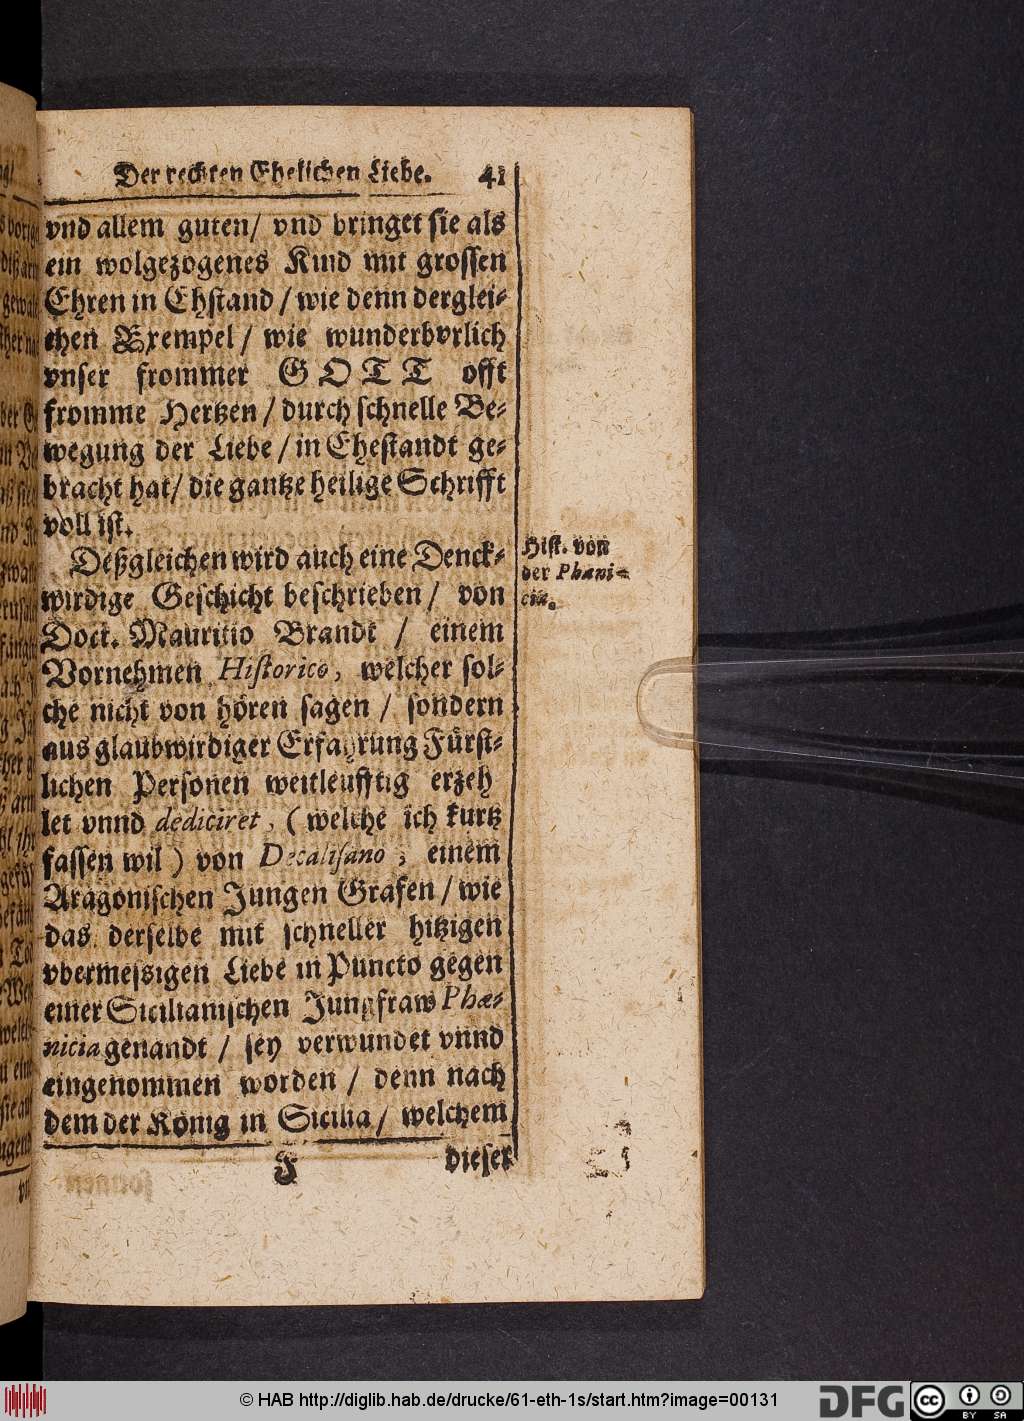 Der rechten Ehelichen Liebe. 41
vnd allem guten/ vnd bringet sie als
ein wolgezogenes Kind mit grossen
Ehren in Ehstand / wie denn derglei-
chen Exempel / wie wunderbvrlich
vnser frommer GOTT offt
fromme Hertzen / durch schnelle Be-
wegung der Liebe / in Ehestandt ge-
bracht hat/ die gantze heilige Schrifft
voll ist.
Deßgleichen wird auch eine Denck-
wirdige Geschicht beschrieben / von
Doct. Mauritio Brandt / einem
Vornehmen Historico, welcher sol-
che nicht von hören sagen / sondern
aus glaubwirdiger Erfahrung Fürst-
lichen Personen weitleufftig erzeh
let vnnd dediciret, (welche ich kurtz
fassen wil) von Decalisano, einem
Aragonischen Jungen Grafen / wie
das derselbe mit schneller hitzigen
vbermessigen Liebe in Puncto gegen
einer Sicilianischen Jungfraw Phæ-
nicia genandt / sey verwundet vnnd
eingenommen worden / denn nach
dem der König in Sicilia / welchem
F dieser
Hist. von
der Phæni-
cia.
© HAB http://diglib.hab.de/drucke/61-eth-1s/start.htm?image=00131
DFG
cc
BY SA